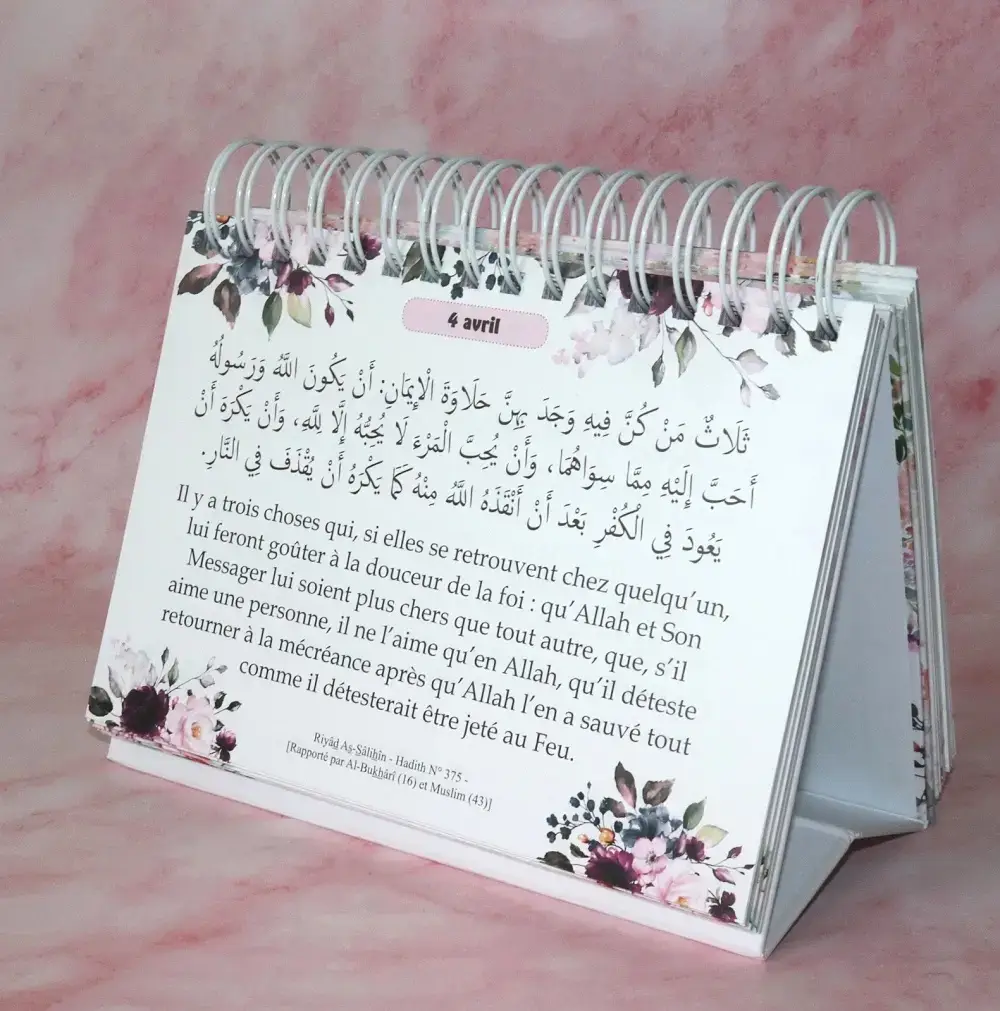 4 avril
ثَلَاثٌ مَنْ كُنَّ فِيهِ وَجَدَ بِهِنَّ حَلَاوَةَ الْإِيمَانِ: أَنْ يَكُونَ اللَّهُ وَرَسُولُهُ
أَحَبَّ إِلَيْهِ مِمَّا سِوَاهُمَا، وَأَنْ يُحِبَّ الْمَرْءَ لَا يُحِبُّهُ إِلَّا لِلَّهِ، وَأَنْ يَكْرَهَ أَنْ
يَعُودَ فِي الْكُفْرِ بَعْدَ أَنْ أَنْقَذَهُ اللَّهُ مِنْهُ كَمَا يَكْرَهُ أَنْ يُقْذَفَ فِي النَّارِ.
Il y a trois choses qui, si elles se retrouvent chez quelqu'un,
lui feront goûter à la douceur de la foi : qu'Allah et Son
Messager lui soient plus chers que tout autre, que, s'il
aime une personne, il ne l'aime qu'en Allah, qu'il déteste
retourner à la mécréance après qu'Allah l'en a sauvé tout
comme il détesterait être jeté au Feu.
Riyâḏ Aṣ-Ṣâliḥîn - Hadith N° 375 -
[Rapporté par Al-Bukhârî (16) et Muslim (43)]